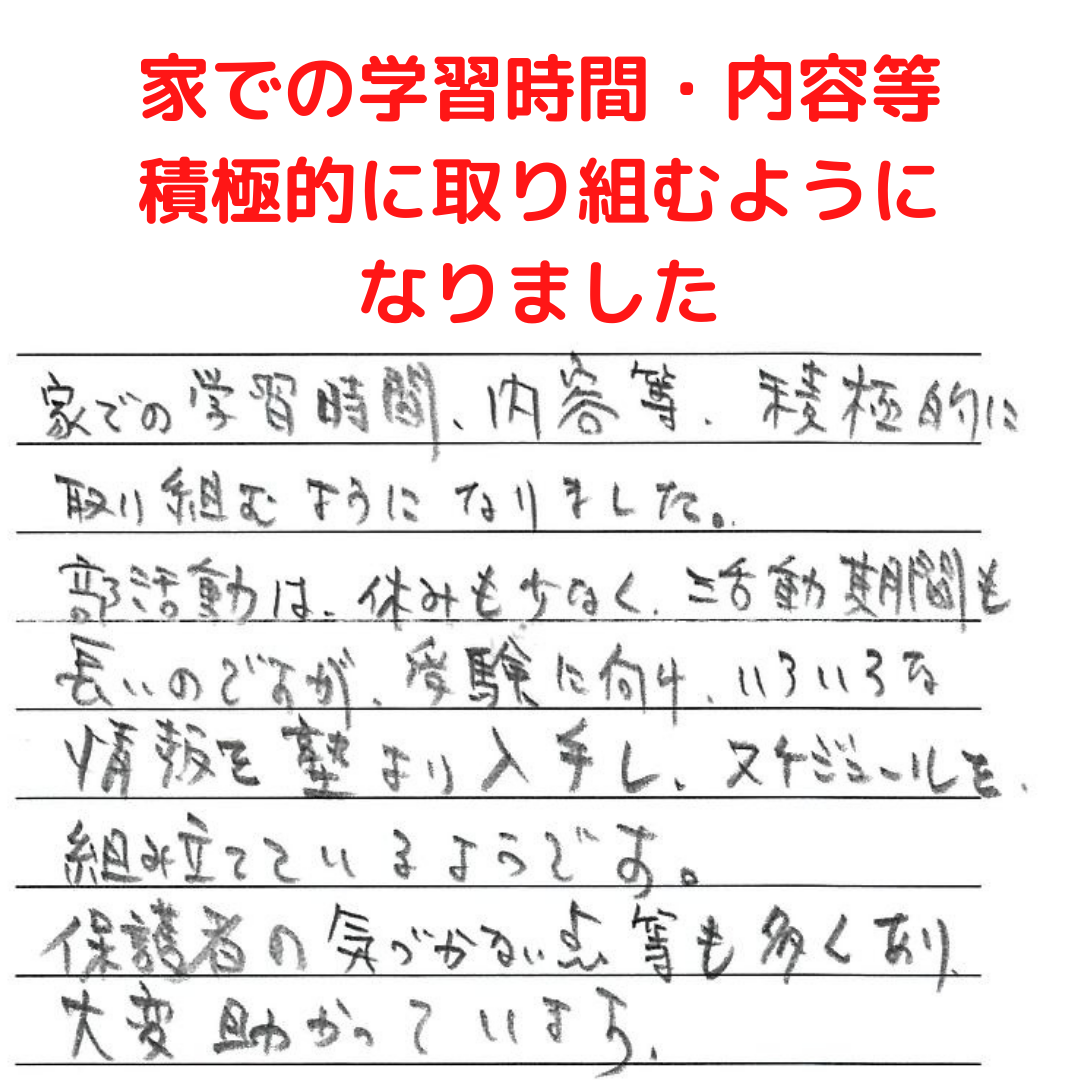 家での学習時間・内容等
積極的に取り組むように
なりました
家での学習時間、内容等、積極的に
取り組むようになりました。
部活動は、休みも少なく、活動期間も
長いのですが、受験に向け、いろいろな
情報を塾より入手し、スケジュールを、
組み立てているようです。
保護者の気づかない点等も多くあり、
大変助かっています。